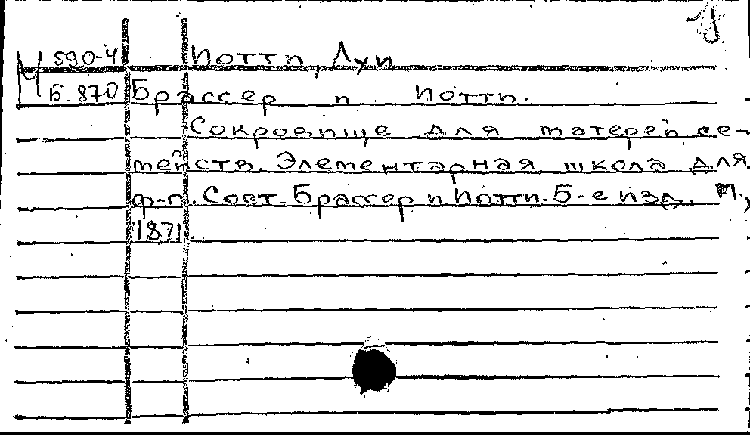 М 590-4 Потти, Луи
Б. 870 Брассер и Потти.
Сокровище для матерей се-
мейств. Элементарная школа для
ф-п. Сост. Брассер и Потти. 5-е изд. М.,
1871.